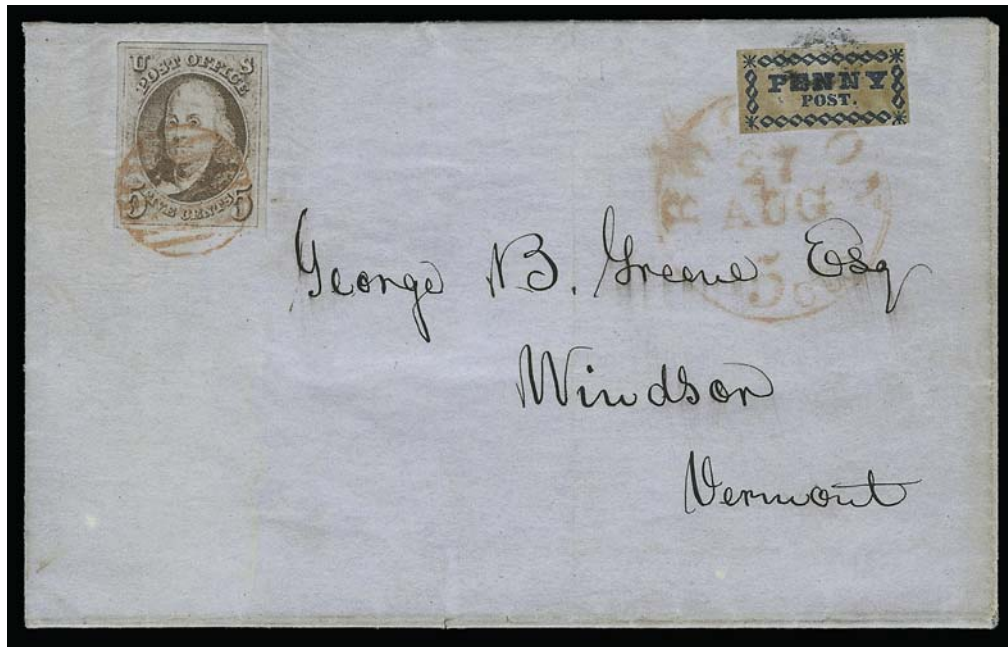 U S
POST OFFICE
5 FIVE CENTS 5
PENNY
POST.
27
AUG
5
George B. Greene Esq
Windsor
Vermont